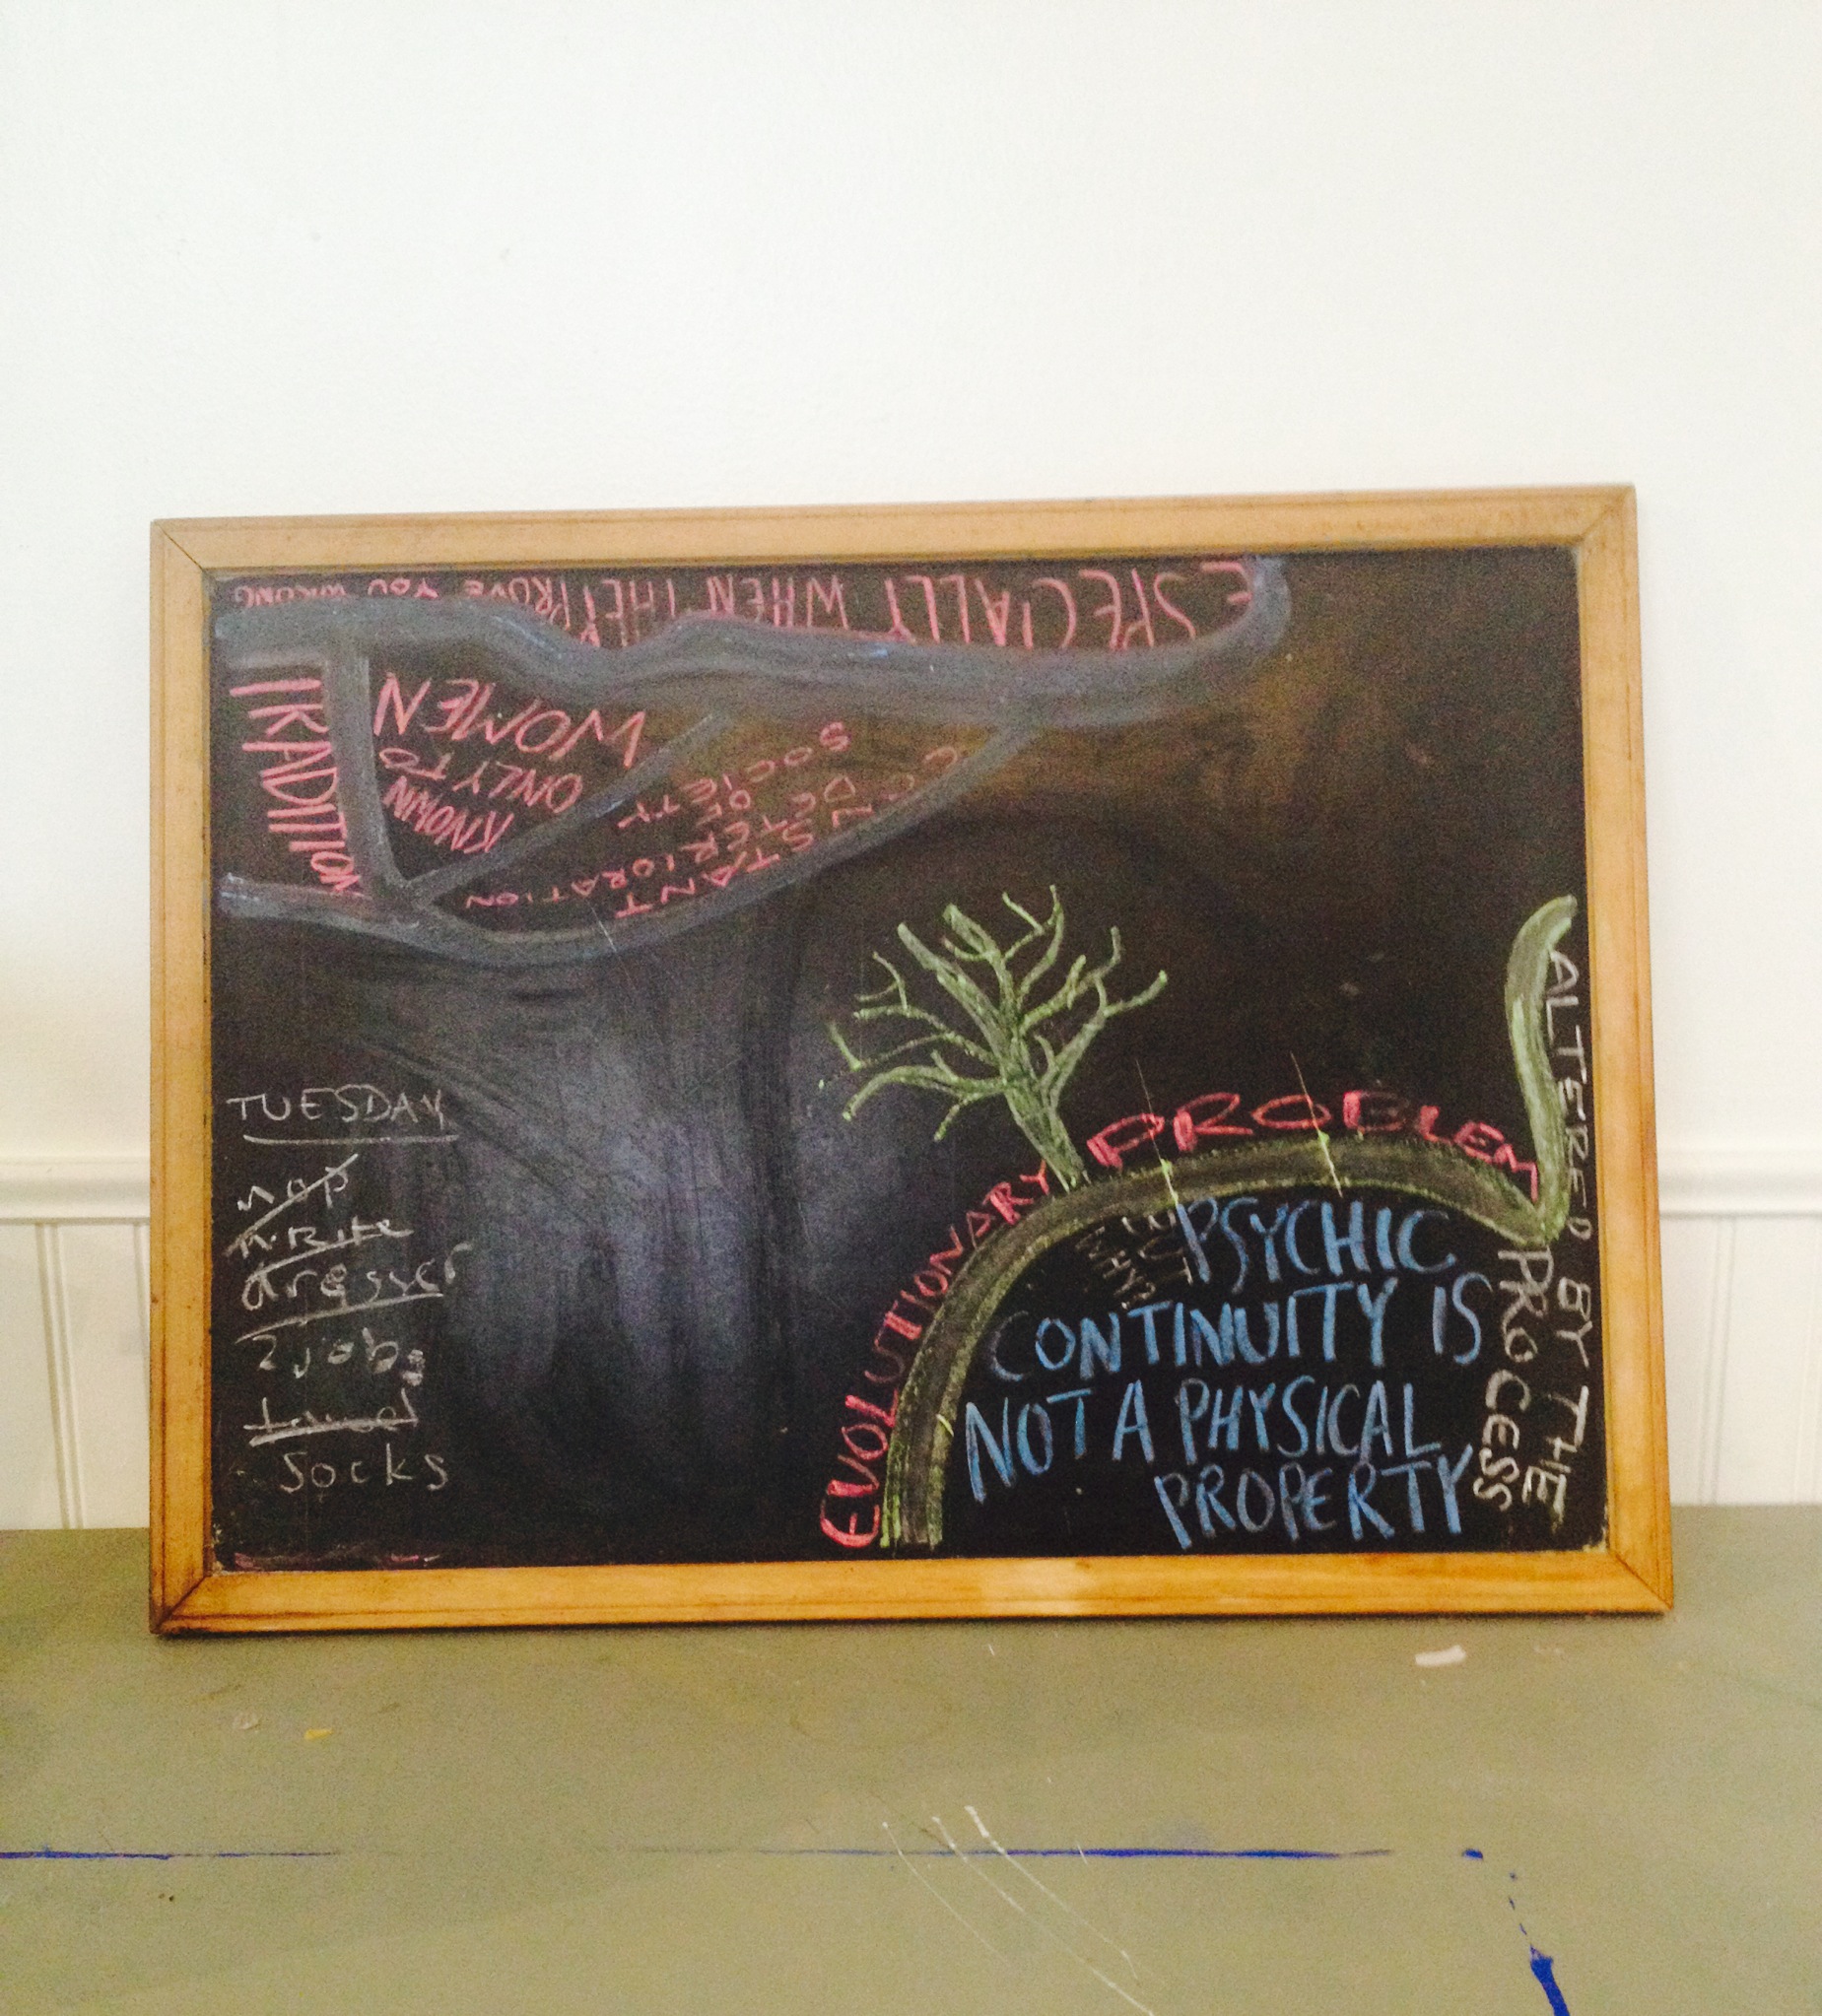 ESPECIALLY WHEN THEY PROVE YOU WRONG
TRADITION
KNOWN
ONLY TO
WOMEN
CONSTANT
DETERIORATION
OF
SOCIETY
TUESDAY
nap
dresser
2 jobs
Socks
EVOLUTIONARY PROBLEM
BUT
WHY?
PSYCHIC
CONTINUITY IS
NOT A PHYSICAL
PROPERTY
ALTERED BY THE
PROCESS